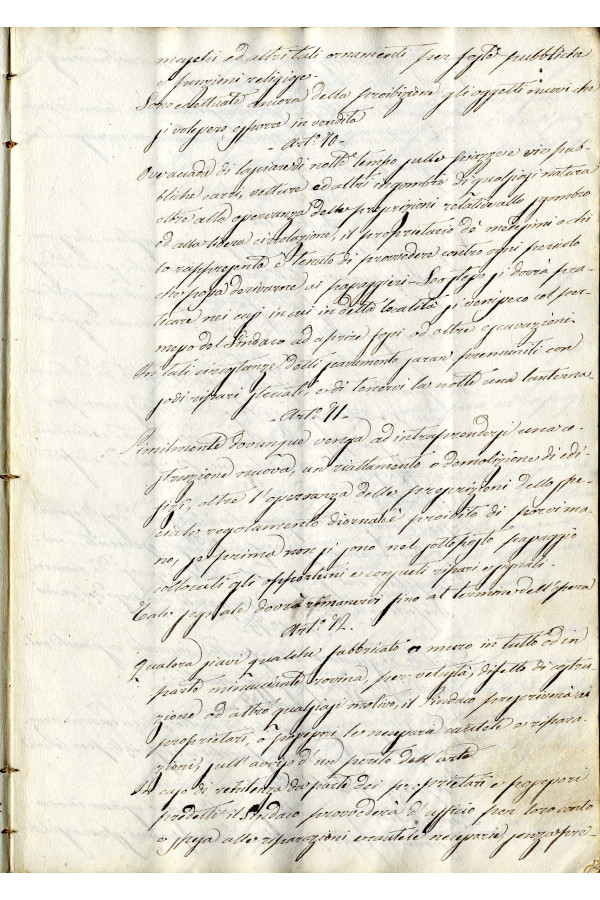 maschi ed altri tali ornamenti per feste pubbliche
e funzioni religiose.
Sono eccettuati ancora della proibizione gli oggetti nuovi che
si volessero esporre in vendita
- Art.º 10 -
Ove accada di lasciare di notte tempo sulle piazze e vie pub-
bliche carri, vetture ed altri ingombri di qualsiasi natura
oltre alla osservanza delle prescrizioni relative allo sgombro
ed alla libera circolazione, il proprietario de' medesimi o chi
lo rappresenta è tenuto di provvedere contro ogni pericolo
che possa derivarne ai passaggieri. Lo stesso si dovrà pra-
ticare nei casi in cui in detta località si venissero col per-
messo del Sindaco ad aprire fossi od altre escavazioni.
In tali circostanze detti scavamenti saran premuniti con
sodi ripari steccati ed di tenervi la notte una lanterna
- Art.º 11 -
Similmente dovunque venga ad intraprendersi una co-
struzione nuova, un riattamento o demolizione di edi-
fizi, oltre l'osservanza delle prescrizioni dello spe-
ciale regolamento d'ornato è proibito di porvi ma-
no, se prima non si sono nel sottoposto passaggio
collocati gli opportuni e consueti ripari e segnali.
Tale segnale dovrà rimanervi fino al termine dell'opera
Art.º 12.
Qualora siavi qualche fabbricato o muro in tutto od in
parte minacciante rovina, per vetustà, difetto di costru-
zione od altro qualsiasi motivo, il Sindaco prescriverà ai
proprietari, o possessori le necessarie cautele o ripara-
zioni, sull'avviso d'un perito dell'arte
In caso di renitenza da parte dei proprietari e possessori
predetti il Sindaco provvederà d'ufficio per loro conto
e spesa alle riparazioni e cautele necessarie, senza pre-